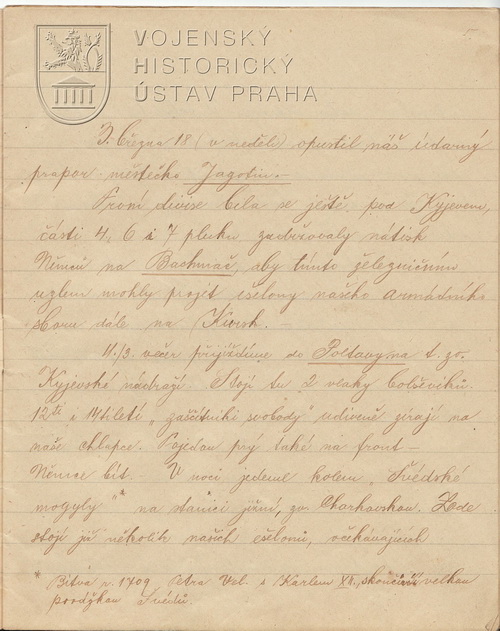 VOJENSKÝ
HISTORICKÝ
ÚSTAV PRAHA
března 18 (v neděli) opustil náš úderný
prapor městečko Jagotin.-
První divise byla se ještě pod Kyjevem,
části 4, 6 i 7 pluku zadržovaly nátisk
Němců na Bachmač, aby tímto železničním
uzlem mohly projít ešelony našeho armádního
sboru dále na Kursk. -
11./3. večer přijíždíme do Poltavy na t. zv.
Kyjevské nádraží. Stojí tu 2 vlaky bolševiků.
12ti i 14tiletí „zaščitniki svobody" udiveně zírají na
naše chlapce. Pojedou prý také na front -
Němce bít. - V noci jedeme kolem „Švédské
mogyly"* na stanici jižní, zv. Charkovskou. Zde
stojí již několik našich ešelonů, očekávajících
* Bitva r. 1709 Petra Vel. s Karlem XII. skončivší velkou
porážkou Švédů.